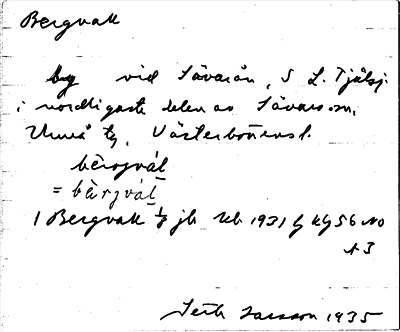 Bergvak
by vid Sävarån, S L. Tjälsj.
i nordligaste delen av Sävars sn,
Umeå tg, Västerbottensl.
bèrgvàt
= bàrgvàt
1 Bergvak jb Ub 1931 kg 56 no
A3
Larsson 1935